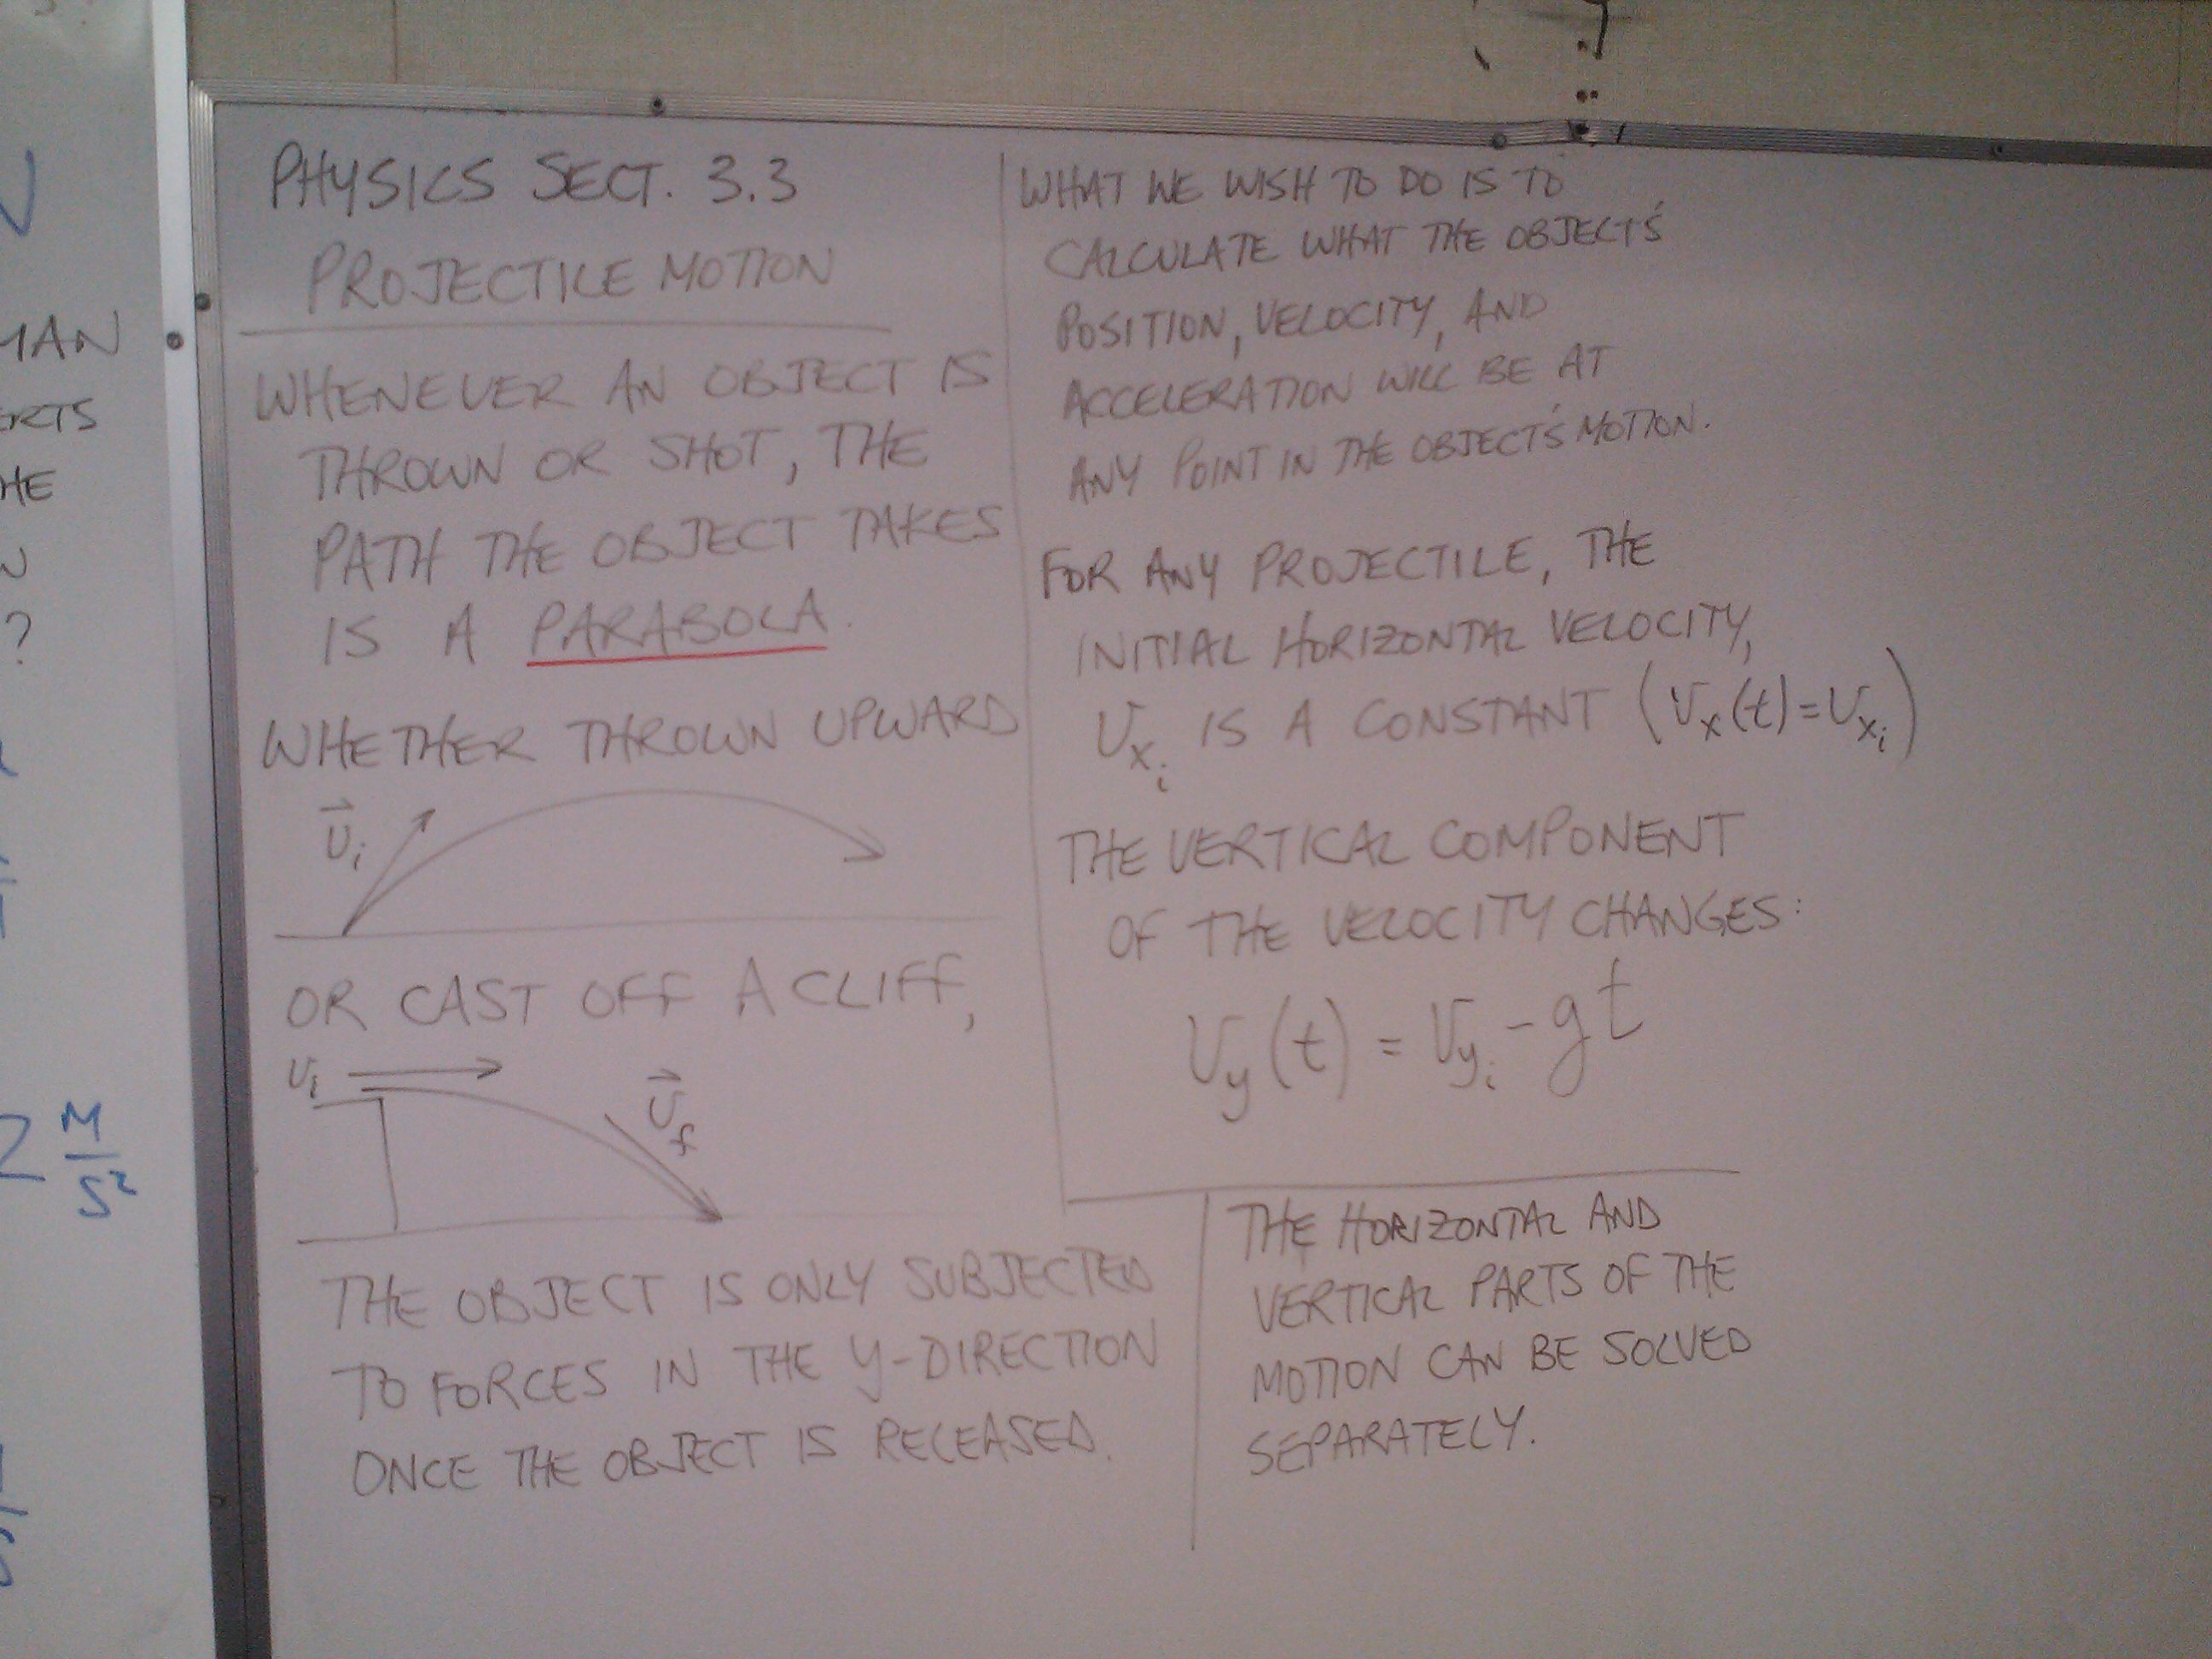 PHYSICS SECT. 3.3
PROJECTILE MOTION
WHENEVER AN OBJECT IS
THROWN OR SHOT, THE
PATH THE OBJECT TAKES
IS A PARABOLA.
WHETHER THROWN UPWARD
v⃗ᵢ
OR CAST OFF A CLIFF,
vᵢ
v⃗f
THE OBJECT IS ONLY SUBJECTED
TO FORCES IN THE Y-DIRECTION
ONCE THE OBJECT IS RELEASED.
WHAT WE WISH TO DO IS TO
CALCULATE WHAT THE OBJECT'S
POSITION, VELOCITY, AND
ACCELERATION WILL BE AT
ANY POINT IN THE OBJECT'S MOTION.
FOR ANY PROJECTILE, THE
INITIAL HORIZONTAL VELOCITY,
vxᵢ IS A CONSTANT (vx(t)=vxᵢ)
THE VERTICAL COMPONENT
OF THE VELOCITY CHANGES:
vy(t) = vyᵢ - gt
THE HORIZONTAL AND
VERTICAL PARTS OF THE
MOTION CAN BE SOLVED
SEPARATELY.
MAN
ERTS
HE
N
?
2 M/S²